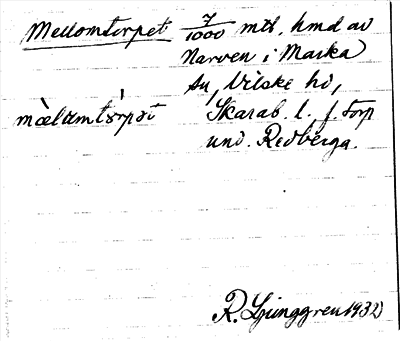 Mellomtorpet 7/1000 mtl. hmd av
Narven i Marka
sn, Vilske hd,
mæ̀lamtór̀pət Skarab. l., f. torp
und. Redberga.
R. Ljunggren 1932